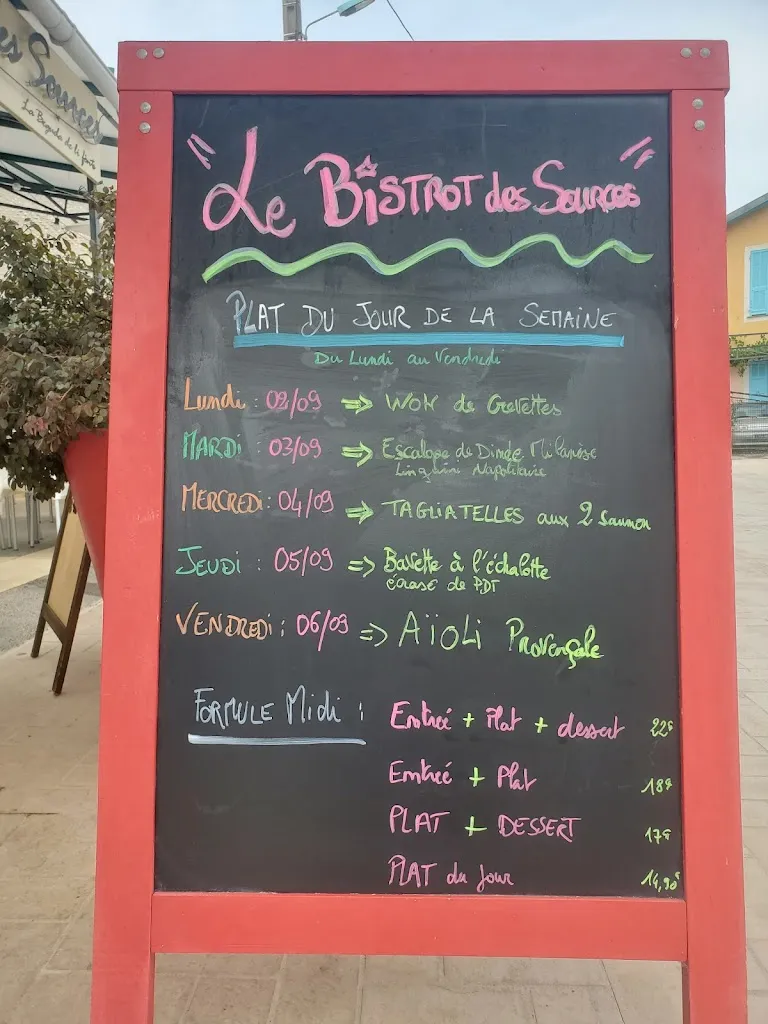 es Sources
Le Bistrot des Sources
Plat du Jour de la Semaine
Du Lundi au Vendredi
Lundi : 02/09 => Wok de Crevettes
Mardi : 03/09 => Escalope de Dinde Milanèse
Linguini Napolitaine
Mercredi : 04/09 => Tagliatelles aux 2 Saumon
Jeudi : 05/09 => Bavette à l'échalotte
écrasé de PDT
Vendredi : 06/09 => Aïoli Provençale
Formule Midi :
Entrée + Plat + dessert 22€
Entrée + Plat 18€
Plat + Dessert 17€
Plat du Jour 14,90€